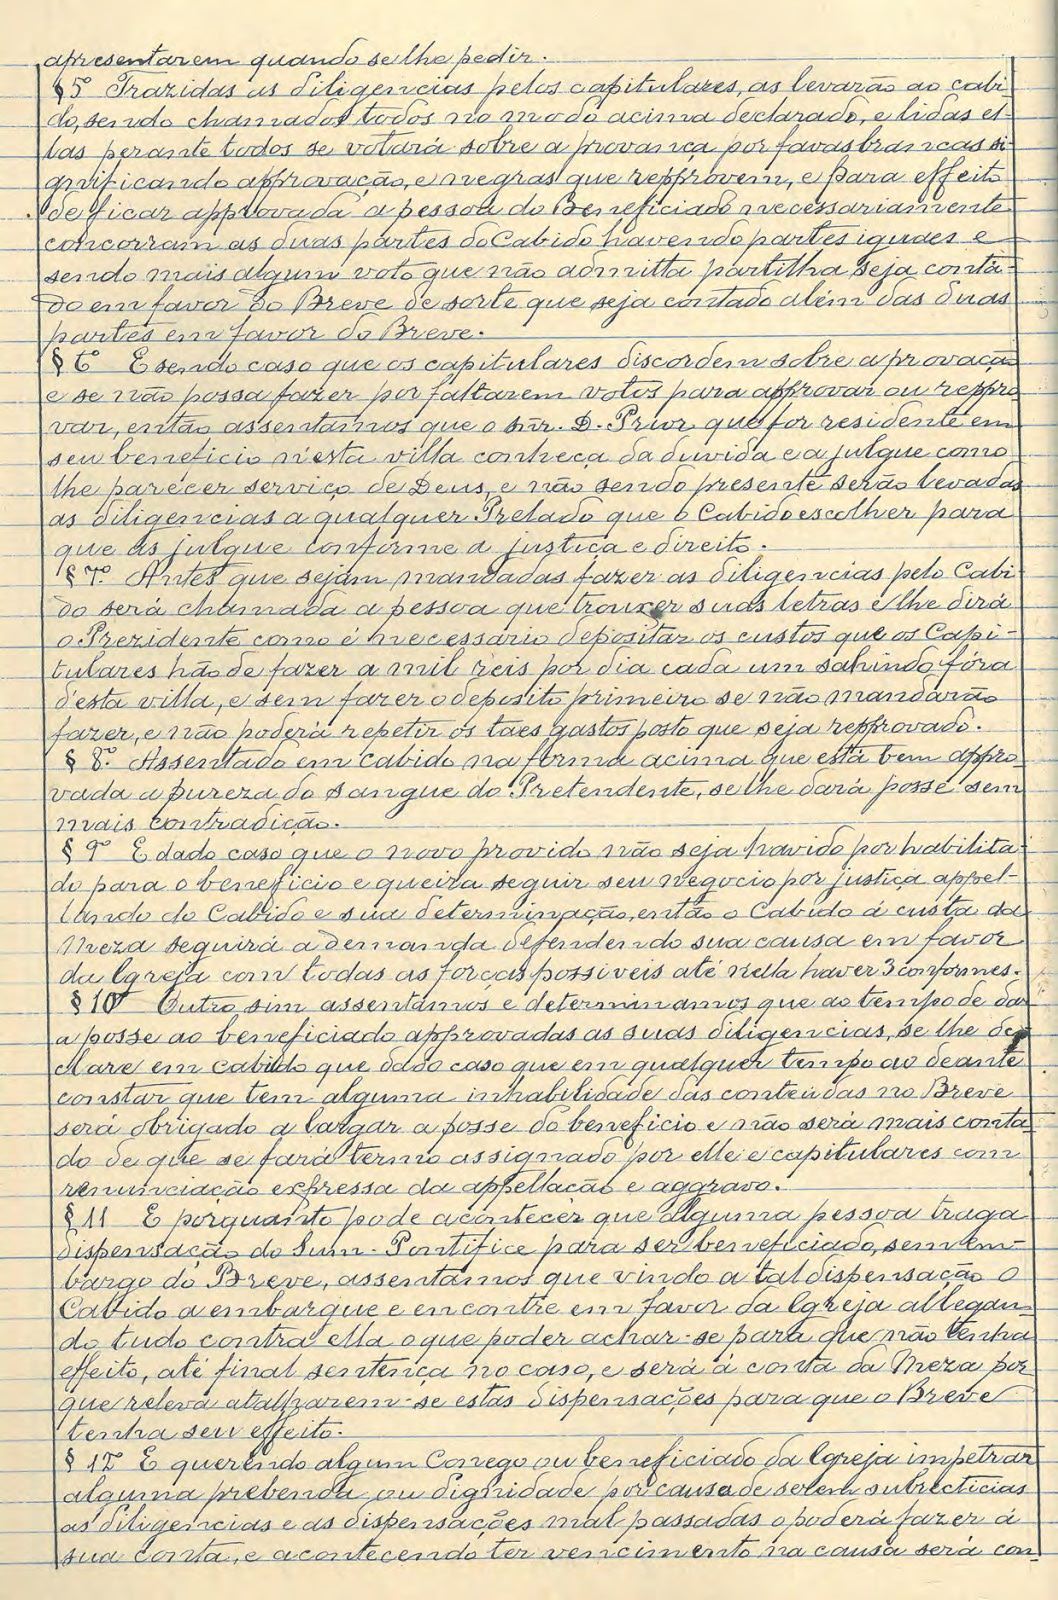 apresentarem quando se lhe pedir.
§ 5º Trazidas as diligencias pelos capitulares, as levarão ao cabi-
do, sendo chamados todos no modo acima declarado, e lidas el-
las perante todos se votará sobre a provança por favas brancas si-
gnificando approvação, e negras que repprovem, e para effeito
de ficar approvada a pessoa do Beneficiado necessariamente
concorram as duas partes do Cabido havendo partes iguaes e
sendo mais algum voto que não admitta partilha seja conta-
do em favor do Breve de sorte que seja contado além das duas
partes em favor do Breve.
§ 6º E sendo caso que os capitulares discordem sobre a provação
e se não possa fazer por faltarem votos para approvar ou reppro
var, então assentámos que o snr. D. Prior que for residente em
seu beneficio n'esta villa conheça da duvida e a julgue como
lhe parecer serviço de Deus, e não sendo presente serão levadas
as diligencias a qualquer Prelado que o Cabido escolher para
que as julgue conforme a justiça e direito.
§ 7º. Antes que sejam mandadas fazer as diligencias pelo Cabi
do será chamada a pessoa que trouxer suas letras e lhe dirá
o Prezidente como é necessario depositar os custos que os Capi-
tulares hão de fazer a mil reis por dia cada um sahindo fóra
d'esta villa, e sem fazer o deposito primeiro se não mandarão
fazer, e não poderá repetir os taes gastos posto que seja repprovado.
§ 8º. Assentado em cabido na forma acima que está bem appro-
vada a pureza do sangue do Pretendente, se lhe dará posse sem
mais contradição.
§ 9º E dado caso que o novo provido não seja havido por habilita-
do para o beneficio e queira seguir seu negocio por justiça appel-
lando do Cabido e sua determinação, então o Cabido á custa da
Meza seguirá a demanda defendendo sua causa em favor
da Igreja com todas as forças possiveis até n'ella haver 3 conformes.
§ 10º Outro sim assentámos e determinamos que ao tempo de dar
a posse ao beneficiado approvadas as suas diligencias, se lhe de
clare em cabido que dado caso que em qualquer tempo ao deante
constar que tem alguma inhabilidade das contendas no Breve
será obrigado a largar a posse do beneficio e não será mais conta
do de que se fará termo assignado por elle e capitulares com
renunciação expressa da appellação e aggravo.
§ 11 E porquanto pode acontecer que alguma pessoa traga
dispensação do Sum. Pontifice para ser beneficiado, sem em-
bargo do Breve, assentámos que vindo a tal dispensação o
Cabido a embargue e encontre em favor da Igreja allegan-
do tudo contra ella o que poder achar-se para que não tenha
effeito, até final sentença no caso, e será á conta da Meza por
que releva atalharem-se estas dispensações para que o Breve
tenha seu effeito.
§ 12 E querendo algum Conego ou beneficiado da Igreja impetrar
alguma prebenda ou dignidade por causa de serem subrecticias
as diligencias e as dispensações mal passadas o poderá fazer á
sua conta, e acontecendo ter vencimento na causa será con-